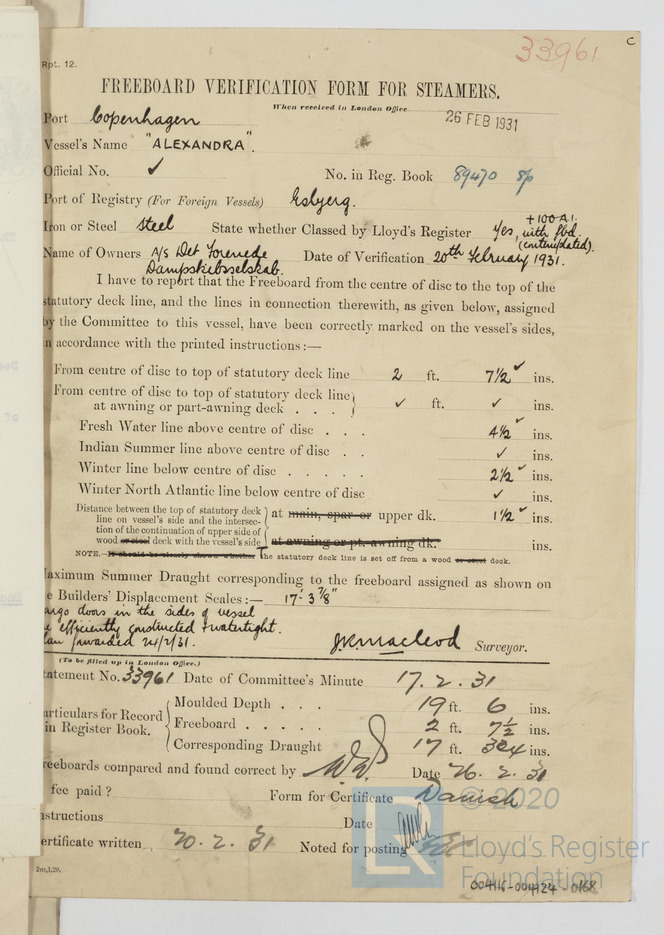 33961
C
Rpt. 12.
FREEBOARD VERIFICATION FORM FOR STEAMERS.
When received in London Office
26 FEB 1931
Port Copenhagen
Vessel's Name "ALEXANDRA".
Official No. ✓ No. in Reg. Book 89470
Port of Registry (For Foreign Vessels) Esbjerg.
+100A.1.
Iron or Steel steel State whether Classed by Lloyd's Register Yes, with fbd.
(contemplated).
Name of Owners A/S Det Forenede Date of Verification 20th February 1931.
Dampskibsselskab.
I have to report that the Freeboard from the centre of disc to the top of the
statutory deck line, and the lines in connection therewith, as given below, assigned
by the Committee to this vessel, have been correctly marked on the vessel's sides,
n accordance with the printed instructions :—
From centre of disc to top of statutory deck line 2 ft. 7½ ✓ ins.
From centre of disc to top of statutory deck line
at awning or part-awning deck . . . ✓ ft. ✓ ins.
Fresh Water line above centre of disc . . . 4½ ✓ ins.
Indian Summer line above centre of disc . . ✓ ins.
Winter line below centre of disc . . . . . 2½ ✓ ins.
Winter North Atlantic line below centre of disc ✓ ins.
Distance between the top of statutory deck
line on vessel's side and the intersec-
tion of the continuation of upper side of
wood or steel deck with the vessel's side
at main, spar or upper dk. 1½ ✓ ins.
at awning or pt. awning dk. ins.
NOTE.—It should be clearly shown whether The statutory deck line is set off from a wood or steel deck.
aximum Summer Draught corresponding to the freeboard assigned as shown on
e Builders' Displacement Scales :— 17'-3⅞"
argo doors in the sides of vessel
e efficiently constructed + watertight.
lan forwarded 24/2/31.
J.K. Macleod Surveyor.
(To be filled up in London Office.)
tatement No. 33961 Date of Committee's Minute 17.2.31
articulars for Record
in Register Book.
Moulded Depth . . . 19 ft. 6 ins.
Freeboard . . . . . 2 ft. 7½ ins.
Corresponding Draught 17 ft. ins.
reeboards compared and found correct by Date 26.2.31
fee paid ? Form for Certificate Danish
nstructions Date
ertificate written 20.2.31 Noted for posting
2m,1,29.
© 2020
LR
Lloyd's Register
Foundation
004116-004124-0168